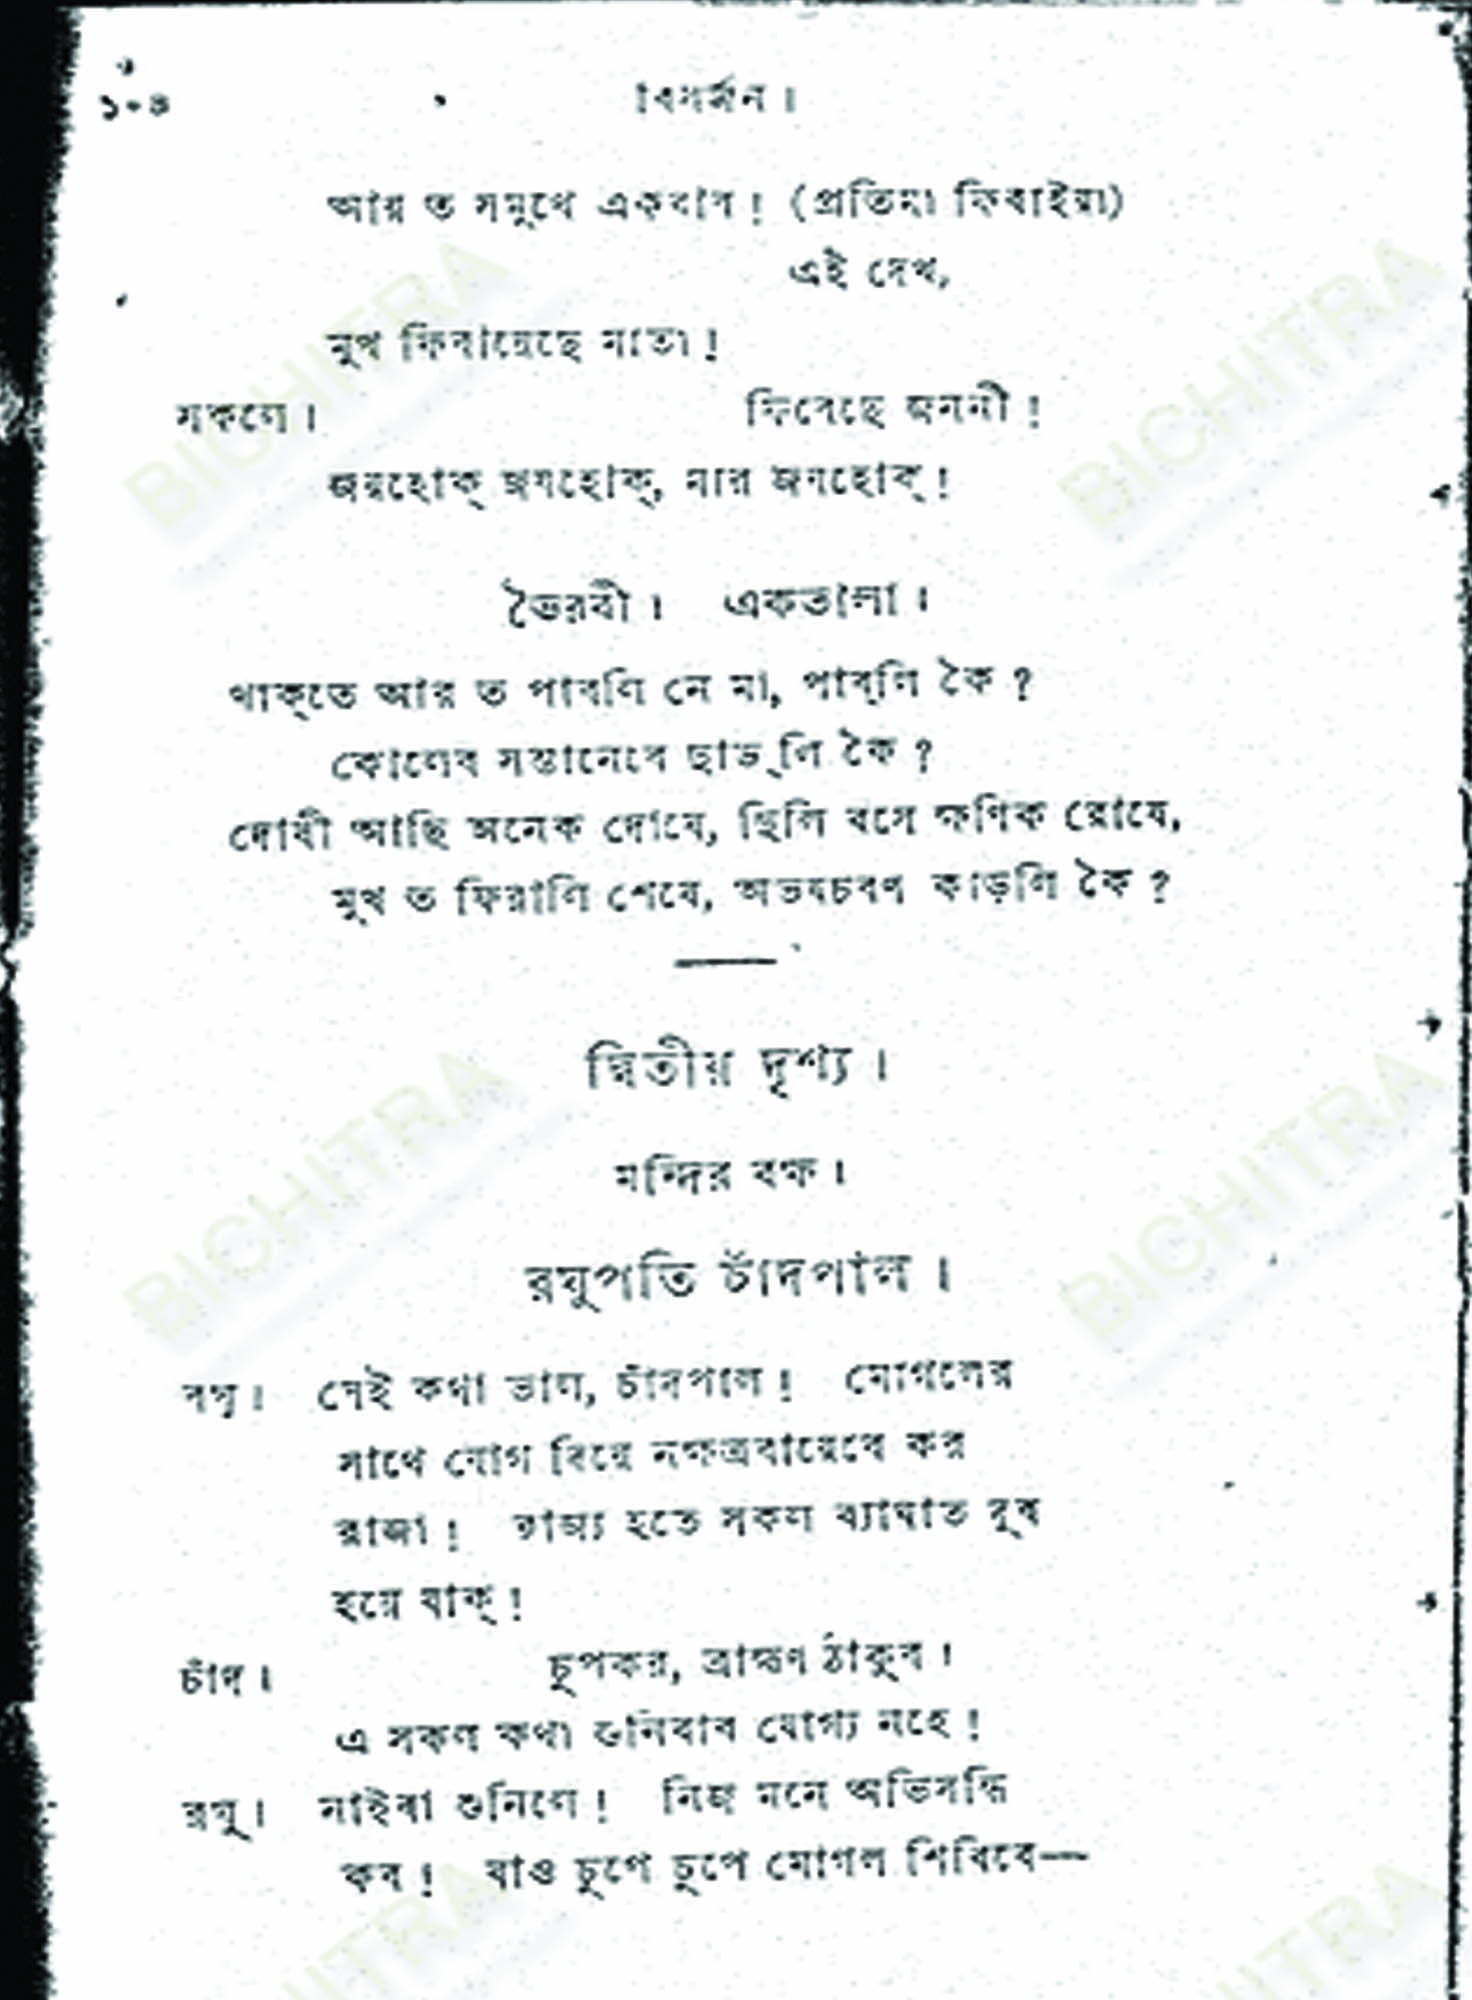 ১০৪ বিসর্জন।
আয় ত সমুখে একবার! (প্রতিমা ফিরাইয়া)
এই দেখ,
মুখ ফিরায়েছে মাতা!
সকলে। ফিরেছে জননী!
জয়হোক্ জয়হোক্, মার জয়হোক্!
ভৈরবী। একতালা।
থাক্তে আর ত পারলি নে মা, পার্লি কৈ?
কোলের সন্তানেরে ছাড়্লি কৈ?
দোষী আছি অনেক দোষে, ছিলি বসে ক্ষণিক রোষে,
মুখ ত ফিরালি শেষে, অভয়চরণ কাড়লি কৈ?
দ্বিতীয় দৃশ্য।
মন্দির কক্ষ।
রঘুপতি চাঁদপাল।
রঘু। সেই কথা ভাল, চাঁদপাল! মোগলের
সাথে যোগ দিয়ে নক্ষত্ররায়েরে কর
রাজা! রাজ্য হতে সকল ব্যাঘাত দূর
হয়ে যাক্!
চাঁদ। চুপকর, ব্রাহ্মণ ঠাকুর।
এ সকল কথা শুনিবার যোগ্য নহে!
রঘু। নাইবা শুনিলে! নিজ মনে অভিসন্ধি
কর! যাও চুপে চুপে মোগল শিবিরে—